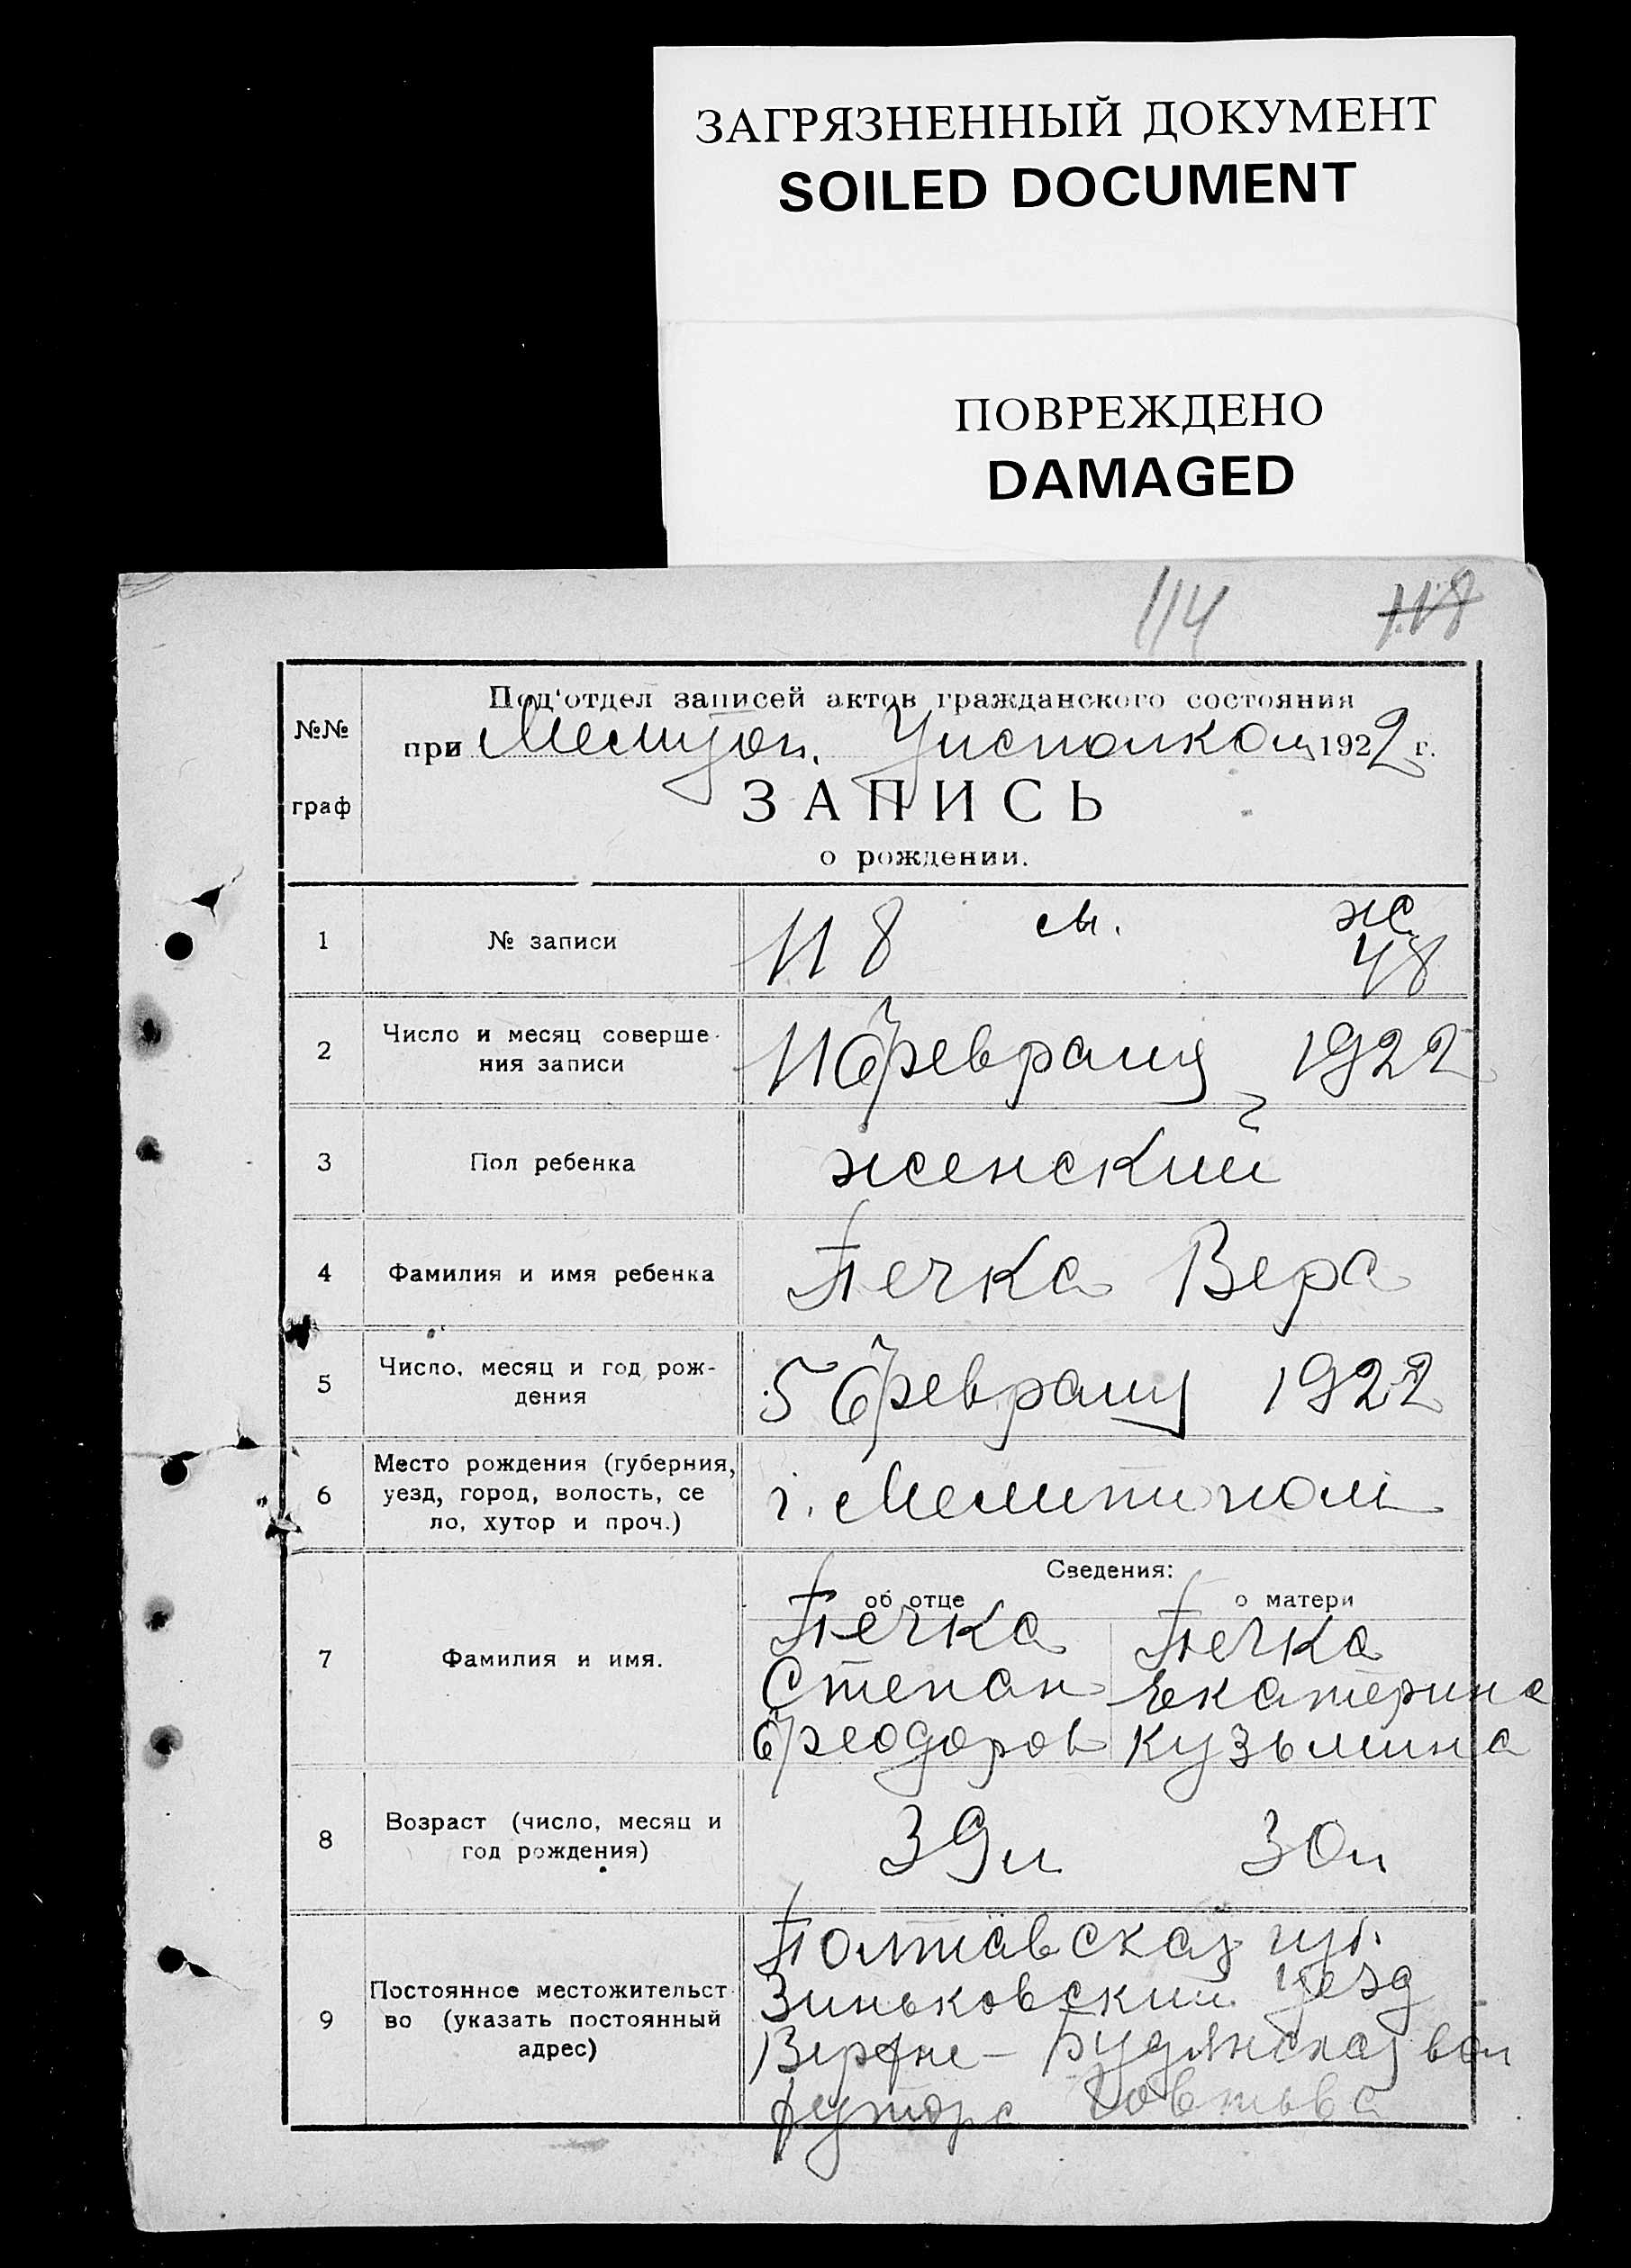 ЗАГРЯЗНЕННЫЙ ДОКУМЕНТ
SOILED DOCUMENT
ПОВРЕЖДЕНО
DAMAGED
114 118
№№ граф
Под'отдел записей актов гражданского состояния
при Мелитоп. Уисполком 1922 г.
ЗАПИСЬ
о рождении.
1 № записи 118 м. ж. 48
2 Число и месяц соверше-
ния записи 11 февраля 1922
3 Пол ребенка женский
4 Фамилия и имя ребенка Печка Вера
5 Число, месяц и год рож-
дения 5 февраля 1922
6 Место рождения (губерния,
уезд, город, волость, се
ло, хутор и проч.) г. Мелитополь
Сведения:
об отце о матери
7 Фамилия и имя.
Печка Печка
Степан Екатерина
Феодоров Кузьмина
8 Возраст (число, месяц и
год рождения) 39 л 30 л
9 Постоянное местожительст-
во (указать постоянный
адрес)
Полтавская губ.
Зиньковский уезд
Верхне-Будянская вол
хутора